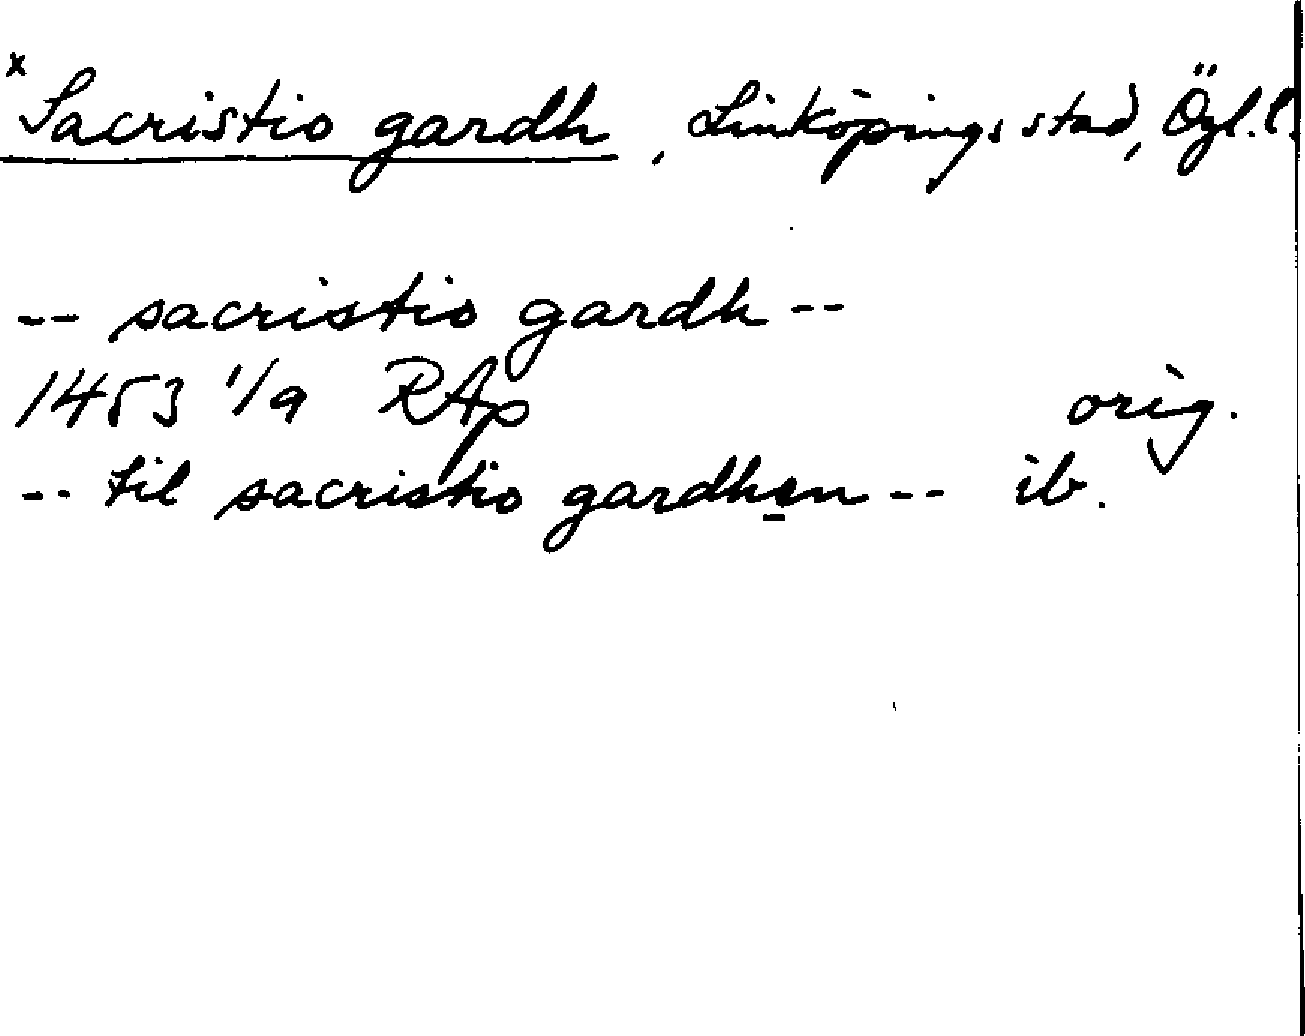 x Sacristio gardh, Linköpings stad, Ögl. l.
-- sacristio gardh --
1453 1/9 RAp orig.
-- til sacristio gardhen -- ib.